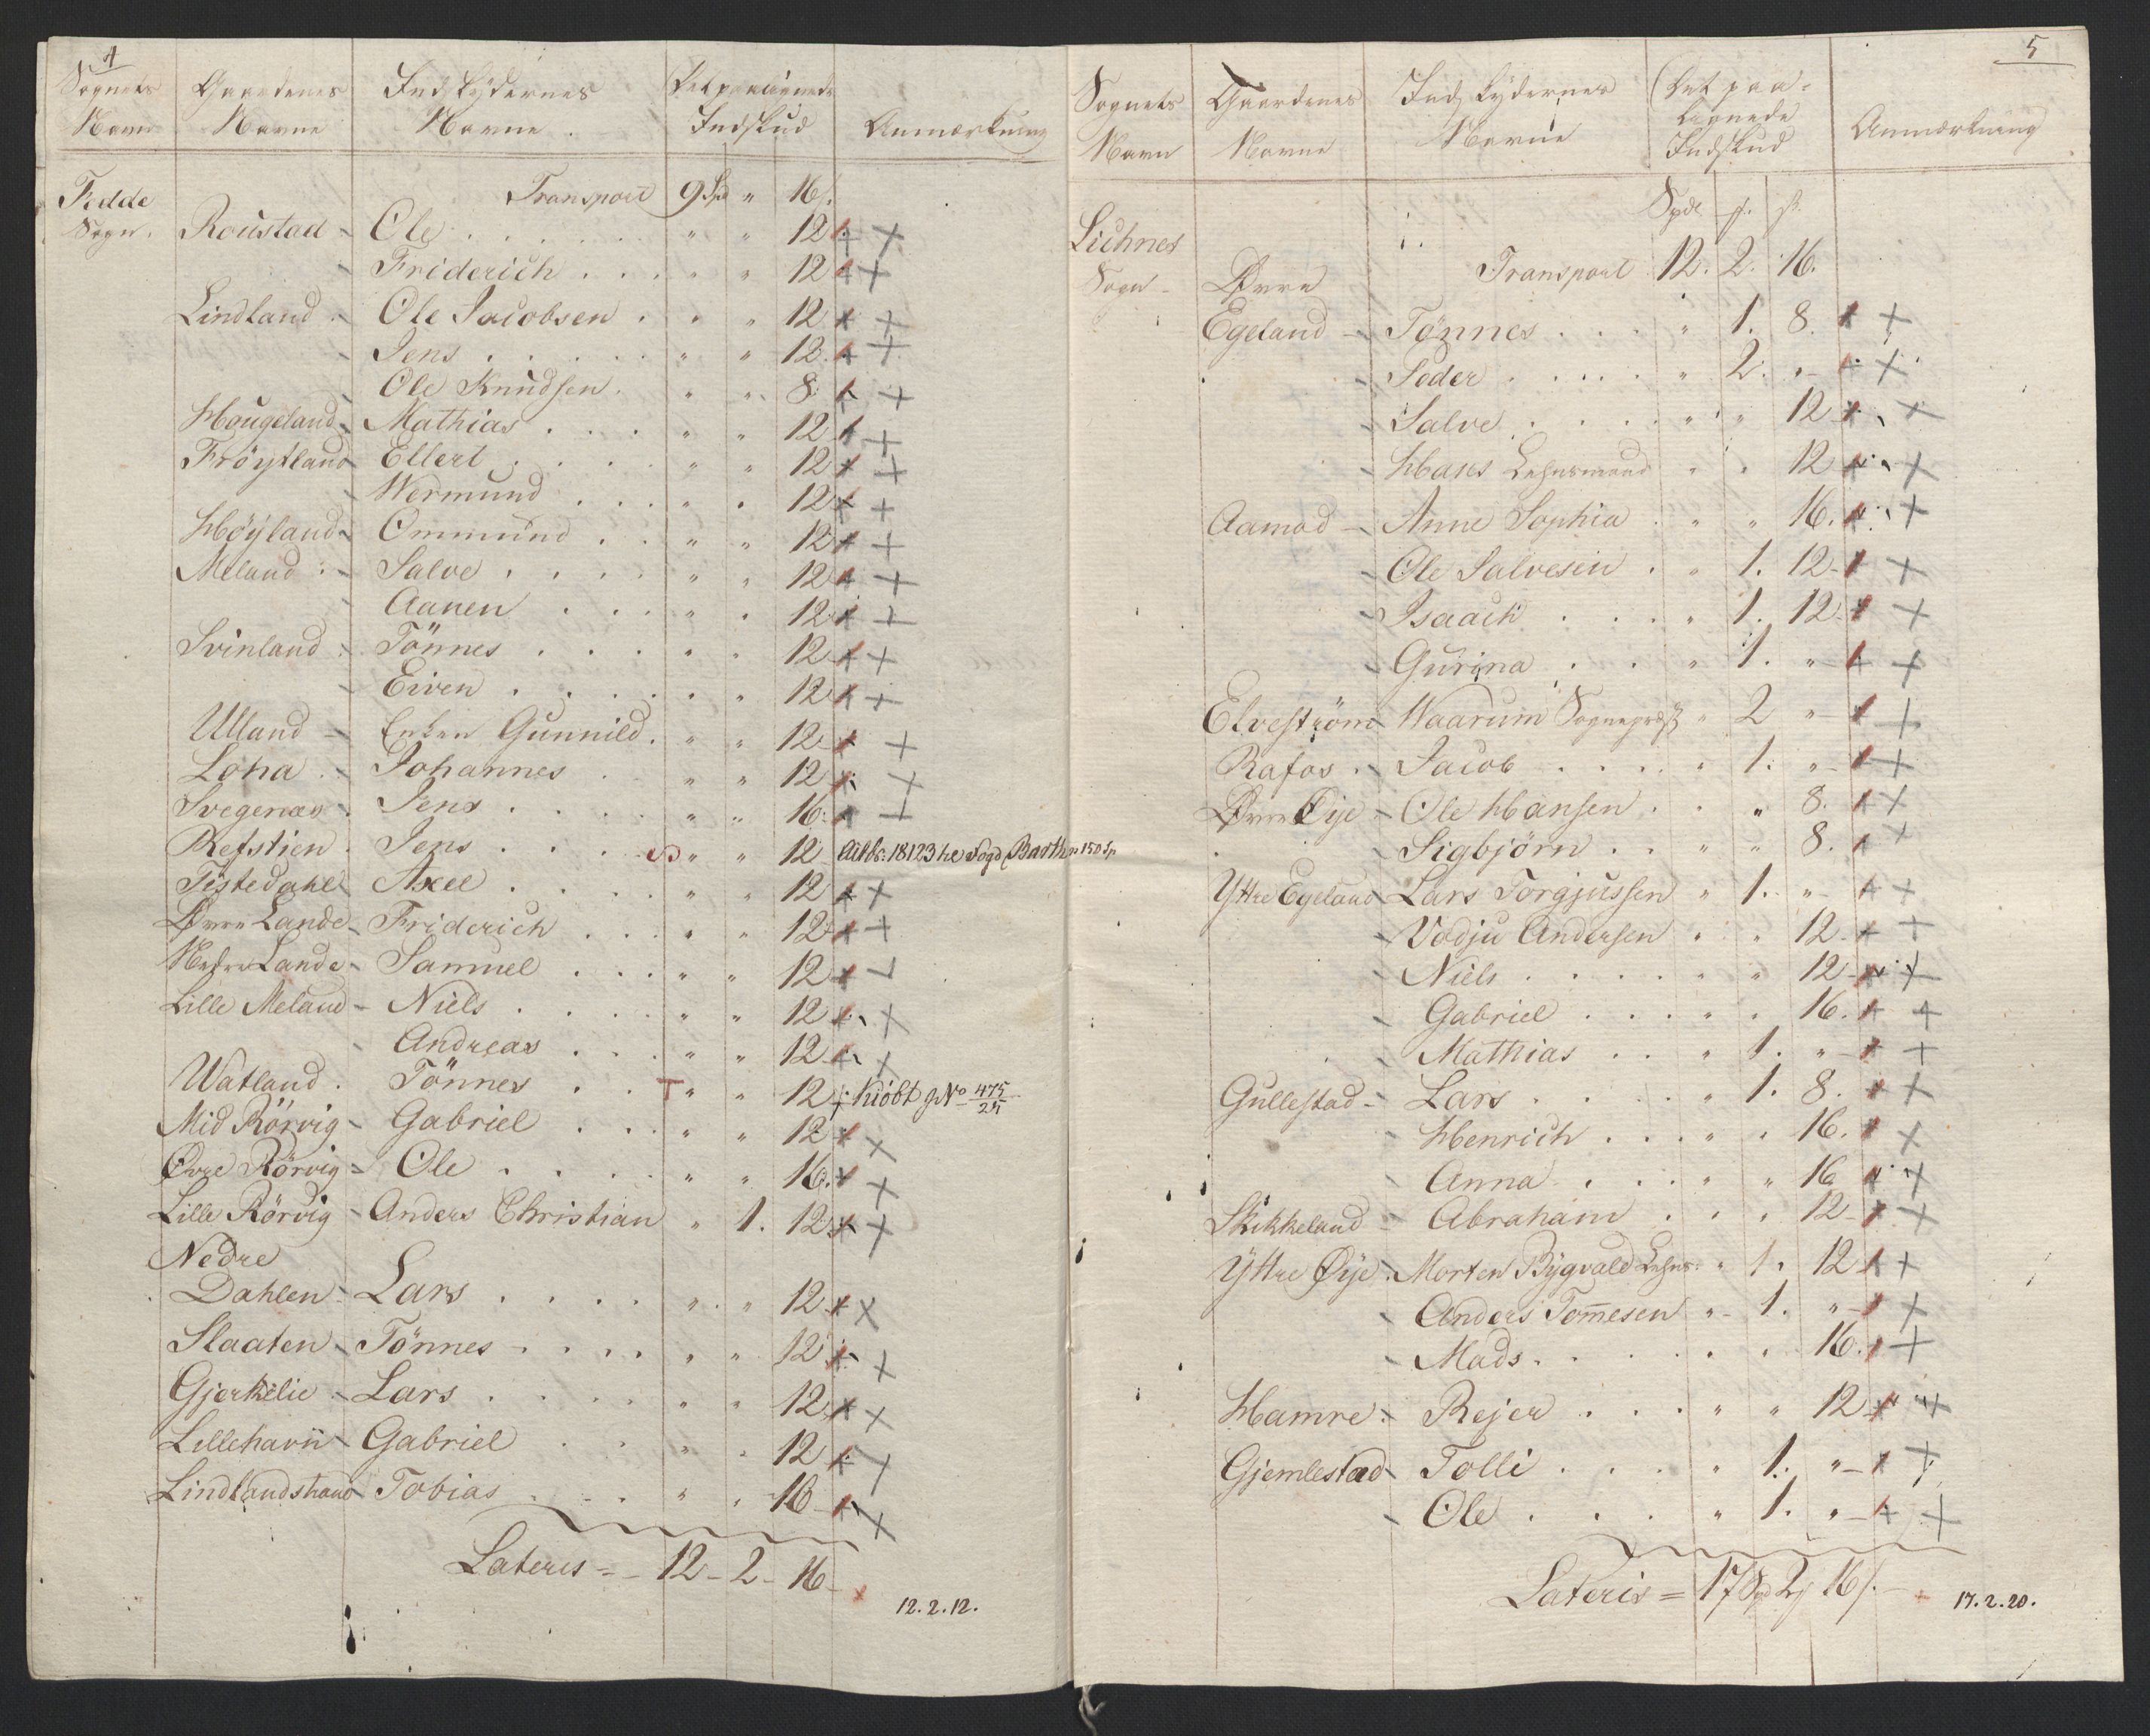 4
Sognets Navn | Gaardenes Navne | Indskydernes Navne | Det paalignede Indskud | Anmærkning
Fedde Sogn. | Transport 9 Spd " 16 s.
Roustad - Ole . . . " " 12
- Friderich . . . " " 12
Lindland - Ole Jacobsen . . " 12
- Jens . . . " " 12.
- Ole Knudsen . " " 8.
Hougeland - Mathias . . . " " 12
Fröytland - Ellert . . . " " 12
- Wermund . . . " " 12
Höyland - Ommund . . " " 12
Meland - Salve . . . " " 12
- Aanen . . . " " 12
Svinland - Tönnes . . . " " 12
- Eiven . . . " " 12
Ulland - Enken Gunnild . " " 12
Loha - Johannes . . " " 12
Svegenæs . Jens . . . " " 16.
Refstien . Jens . . . " " 12
Tistedahl Axel . . . " " 12
Øvre Lande - Friderich . . . " " 12
Nedre Lande - Samuel . . . " " 12
Lille Meland - Niels . . . " " 12
- Andreas . . . " " 12
Watland . Tönnes . . T " " 12 kiöbt No 475/25
Mid Rörvig - Gabriel . . . " " 12
Øvre Rörvig - Ole . . . " " 16.
Lille Rörvig - Anders Christian " 1. 12
Nedre
Dahlen - Lars . . . " " 12
Slaaten - Tönnes - . . . " " 12
Gjerkelie - Lars . . . " " 12
Lillehavn - Gabriel . . " " 12
Lindlandshavn Tobias . . . " " 16
Lateris = 12 - 2 - 16
12.2.12.
5
Sognets Navn | Gaardenes Navne | Indskydernes Navne | Det paalignede Indskud | Anmærkning
Spdl
Lichnes Sogn - | Øvre | Transport 12. 2. 16.
Egeland - Tönnes . . . " 1. 8.
- Peder . . . " 2. "
- Salve . . . " " 12
- Hans Lehnsmand " " 12
Aamod - Anne Sophia . " " 16.
- Ole Salvesen . " 1. 12
- Isaach . . . " 1. 12
- Gurina . . . " 1. "
Elveström Waarum Sognepræst " 2 "
Rafos . - Jacob . . . " 1. "
Øvre Øye - Ole Hansen . . " 8.
- Sigbjörn . . " " 8.
Yttre Egeland Lars Torgjussen " 1. "
- Vodju Andersen " " 12
- Niels . . . " " 12
- Gabriel . . . " " 16.
- Mathias . . . " 1. "
Gullestad - Lars . . . " 1. 8.
- Henrich . . . " " 16.
- Anna . . . " " 16
Skikkeland - Abraham . . . " 12
Yttre Øye . Morten Bygvald Lehns. " 1. 12
- Anders Tom̄esen " 1. "
- Mads . . . " " 16.
Hamre . - Rejer . . . " " 12
Gjemlestad - Tolli . . . " 1. "
- Ole . . . " 1. "
Lateris = 17 Spd 2 16 s.
17.2.20.